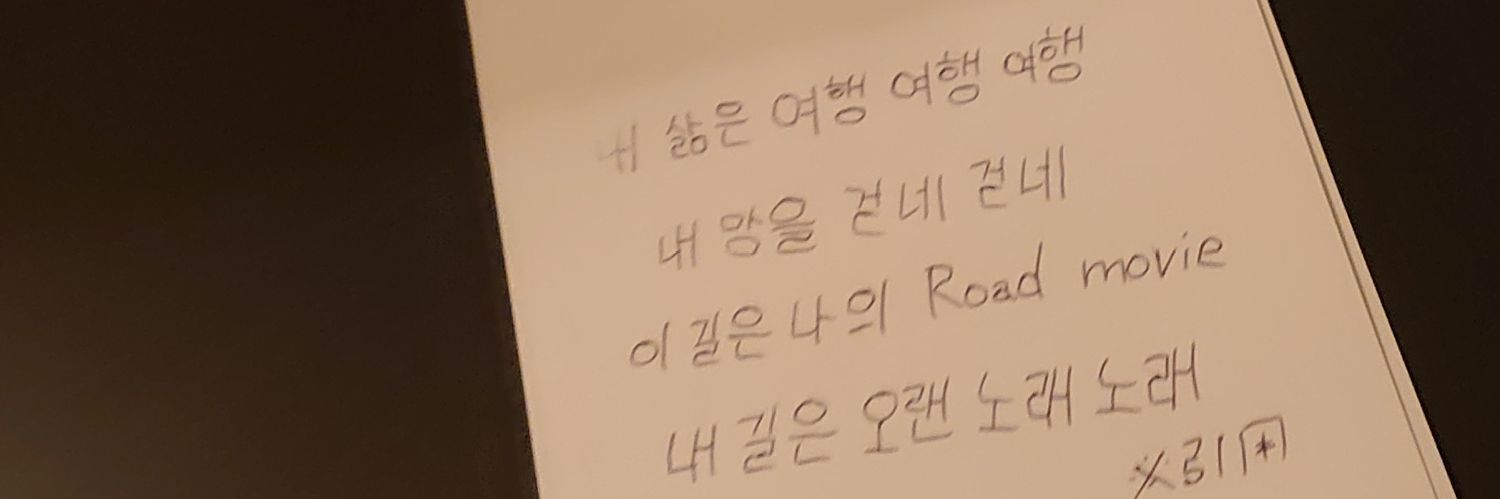 내 삶은 여행 여행 여행
내 맘을 걷네 걷네
이 길은 나의 Road movie
내 길은 오랜 노래 노래